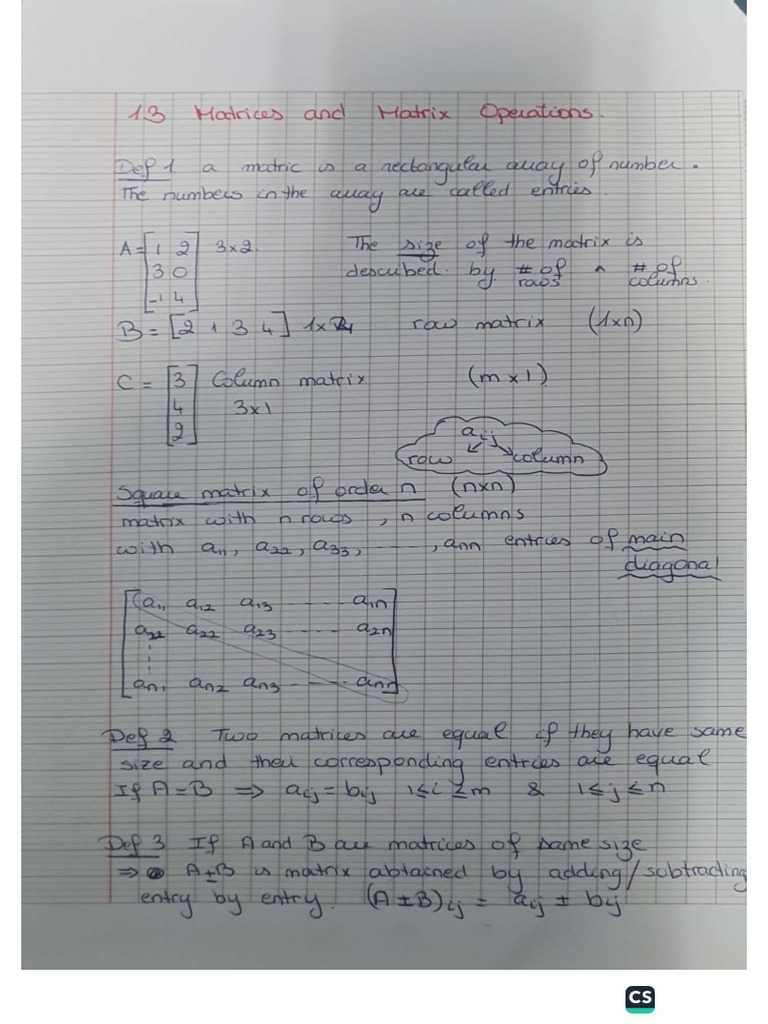 1.3 Matrices and Matrix Operations.
Def 1 a matric is a rectangular array of number.
The numbers in the array are called entries.
A = [1 2 3x2. The size of the matrix is
3 0 described by # of rows ^ # of columns.
-1 4]
B = [2 1 3 4] 1x4 row matrix (1xn)
C = [3 Column matrix (mx1)
4 3x1
2]
aij
row column
Square matrix of order n (nxn)
matrix with n rows, n columns
with a11, a22, a33, ----, ann entries of main
diagonal
[a11 a12 a13 ---- a1n
a21 a22 a23 ---- a2n
an1 an2 an3 ---- ann]
Def 2 Two matrices are equal if they have same
size and their corresponding entries are equal
If A = B => aij = bij 1≤i≤m & 1≤j≤n
Def 3 If A and B are matrices of same size
=> A±B is matrix abtained by adding/subtracting
entry by entry. (A±B)ij = aij ± bij
CS